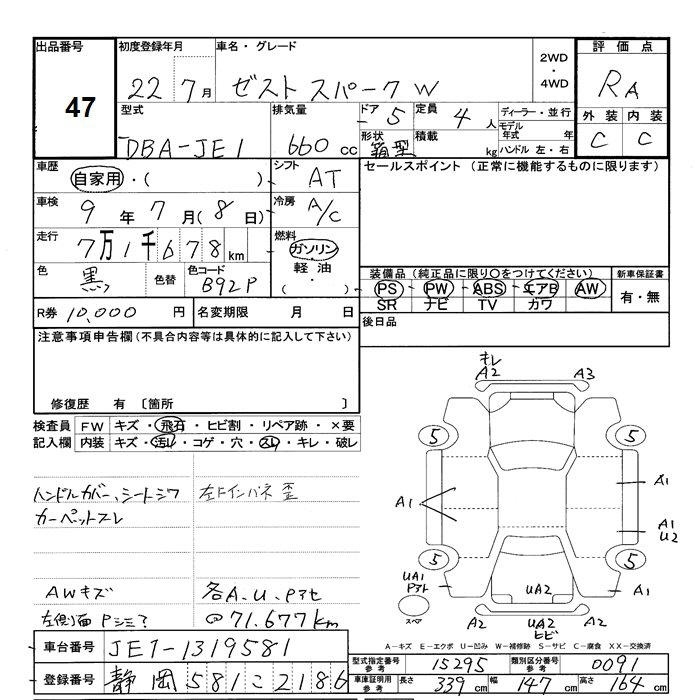 出品番号 初度登録年月 車名・グレード 2WD・4WD 評価点
47 22 7月 ゼスト スパーク W RA
型式 排気量 ドア 5 定員 4人 ディーラー・並行 外装 内装
DBA-JE1 660cc 形状 箱型 積載 kg モデル年式 年式 ハンドル 左・右 C C
車歴 自家用・( ) シフト AT セールスポイント (正常に機能するものに限ります)
車検 9年7月(8日) 冷房 A/C
走行 7万1千678km 燃料 ガソリン
色 黒 色替 色コード B92P 軽油・( ) 装備品 (純正品に限り○をつけてください) 新車保証書
PS・PW・ABS・エアB AW 有・無
SR ナビ TV カワ
R券 10,000円 名変期限 月 日 後日品
注意事項申告欄 (不具合内容等は具体的に記入して下さい)
修復歴 有 〔箇所 〕
検査員 FW キズ・飛石・ヒビ割・リペア跡・×要
記入欄 内装 キズ・汚れ・コゲ・穴・スレ・キレ・破レ
ハンドルカバー、シートシワ 左Fインパネ歪
カーペットスレ
AWキズ 各A.U.Pアセ
左側面 Pシミ? @71.677km
キレ
A2 A3
5 5
A1 A1
A1
U2
5 5
UA1
Pアト UA2 A1
スペア A2 UA2 A2
ヒビ
A-キズ E-エクボ U-凹み W-補修跡 S-サビ C-腐食 XX-交換済
車台番号 JE1-1319581
登録番号 静岡581こ2186
型式指定番号 参考 15295 類別区分番号 参考 0091
車庫証明用 参考 長さ 339cm 幅 147cm 高さ 164cm